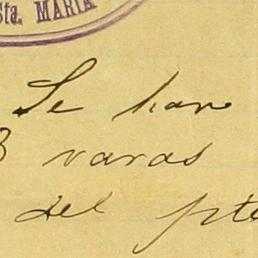 Sta. MARIA
Se haro
3 varas
del pte